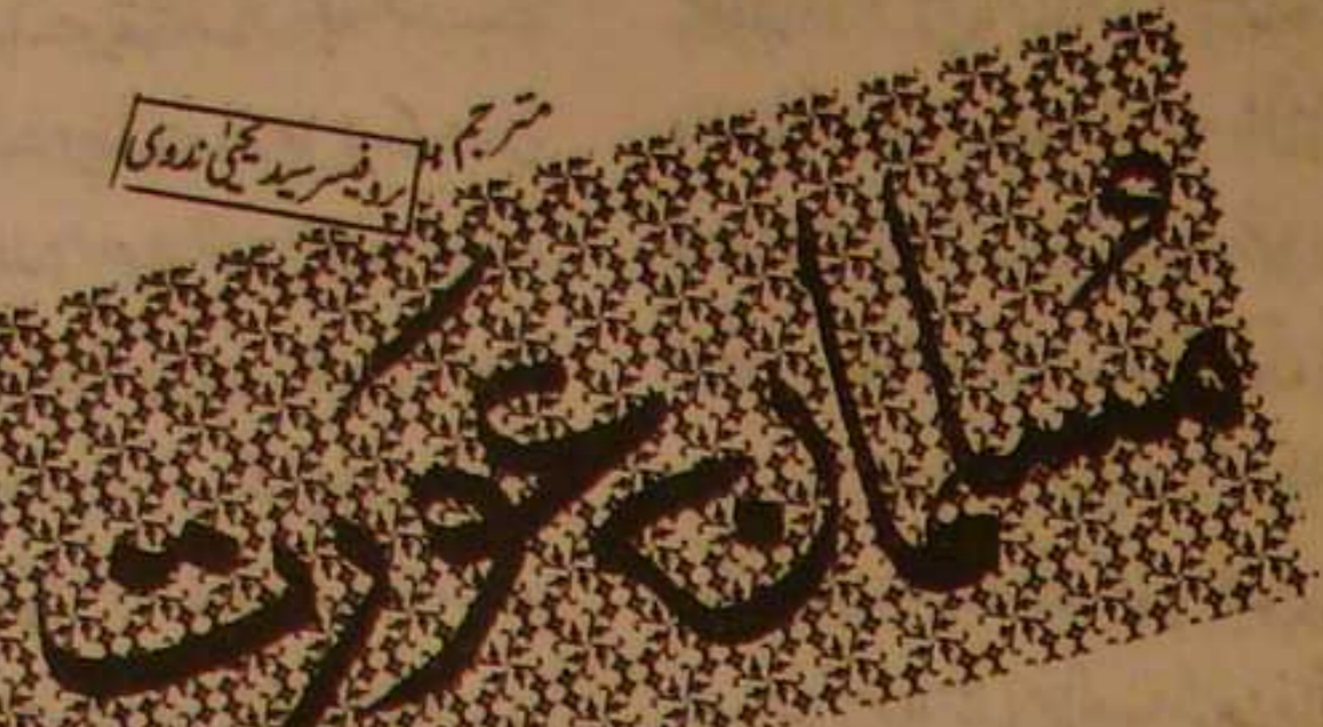 مترجم:
پروفیسر سید یحییٰ ندوی
مُسلمان عورت